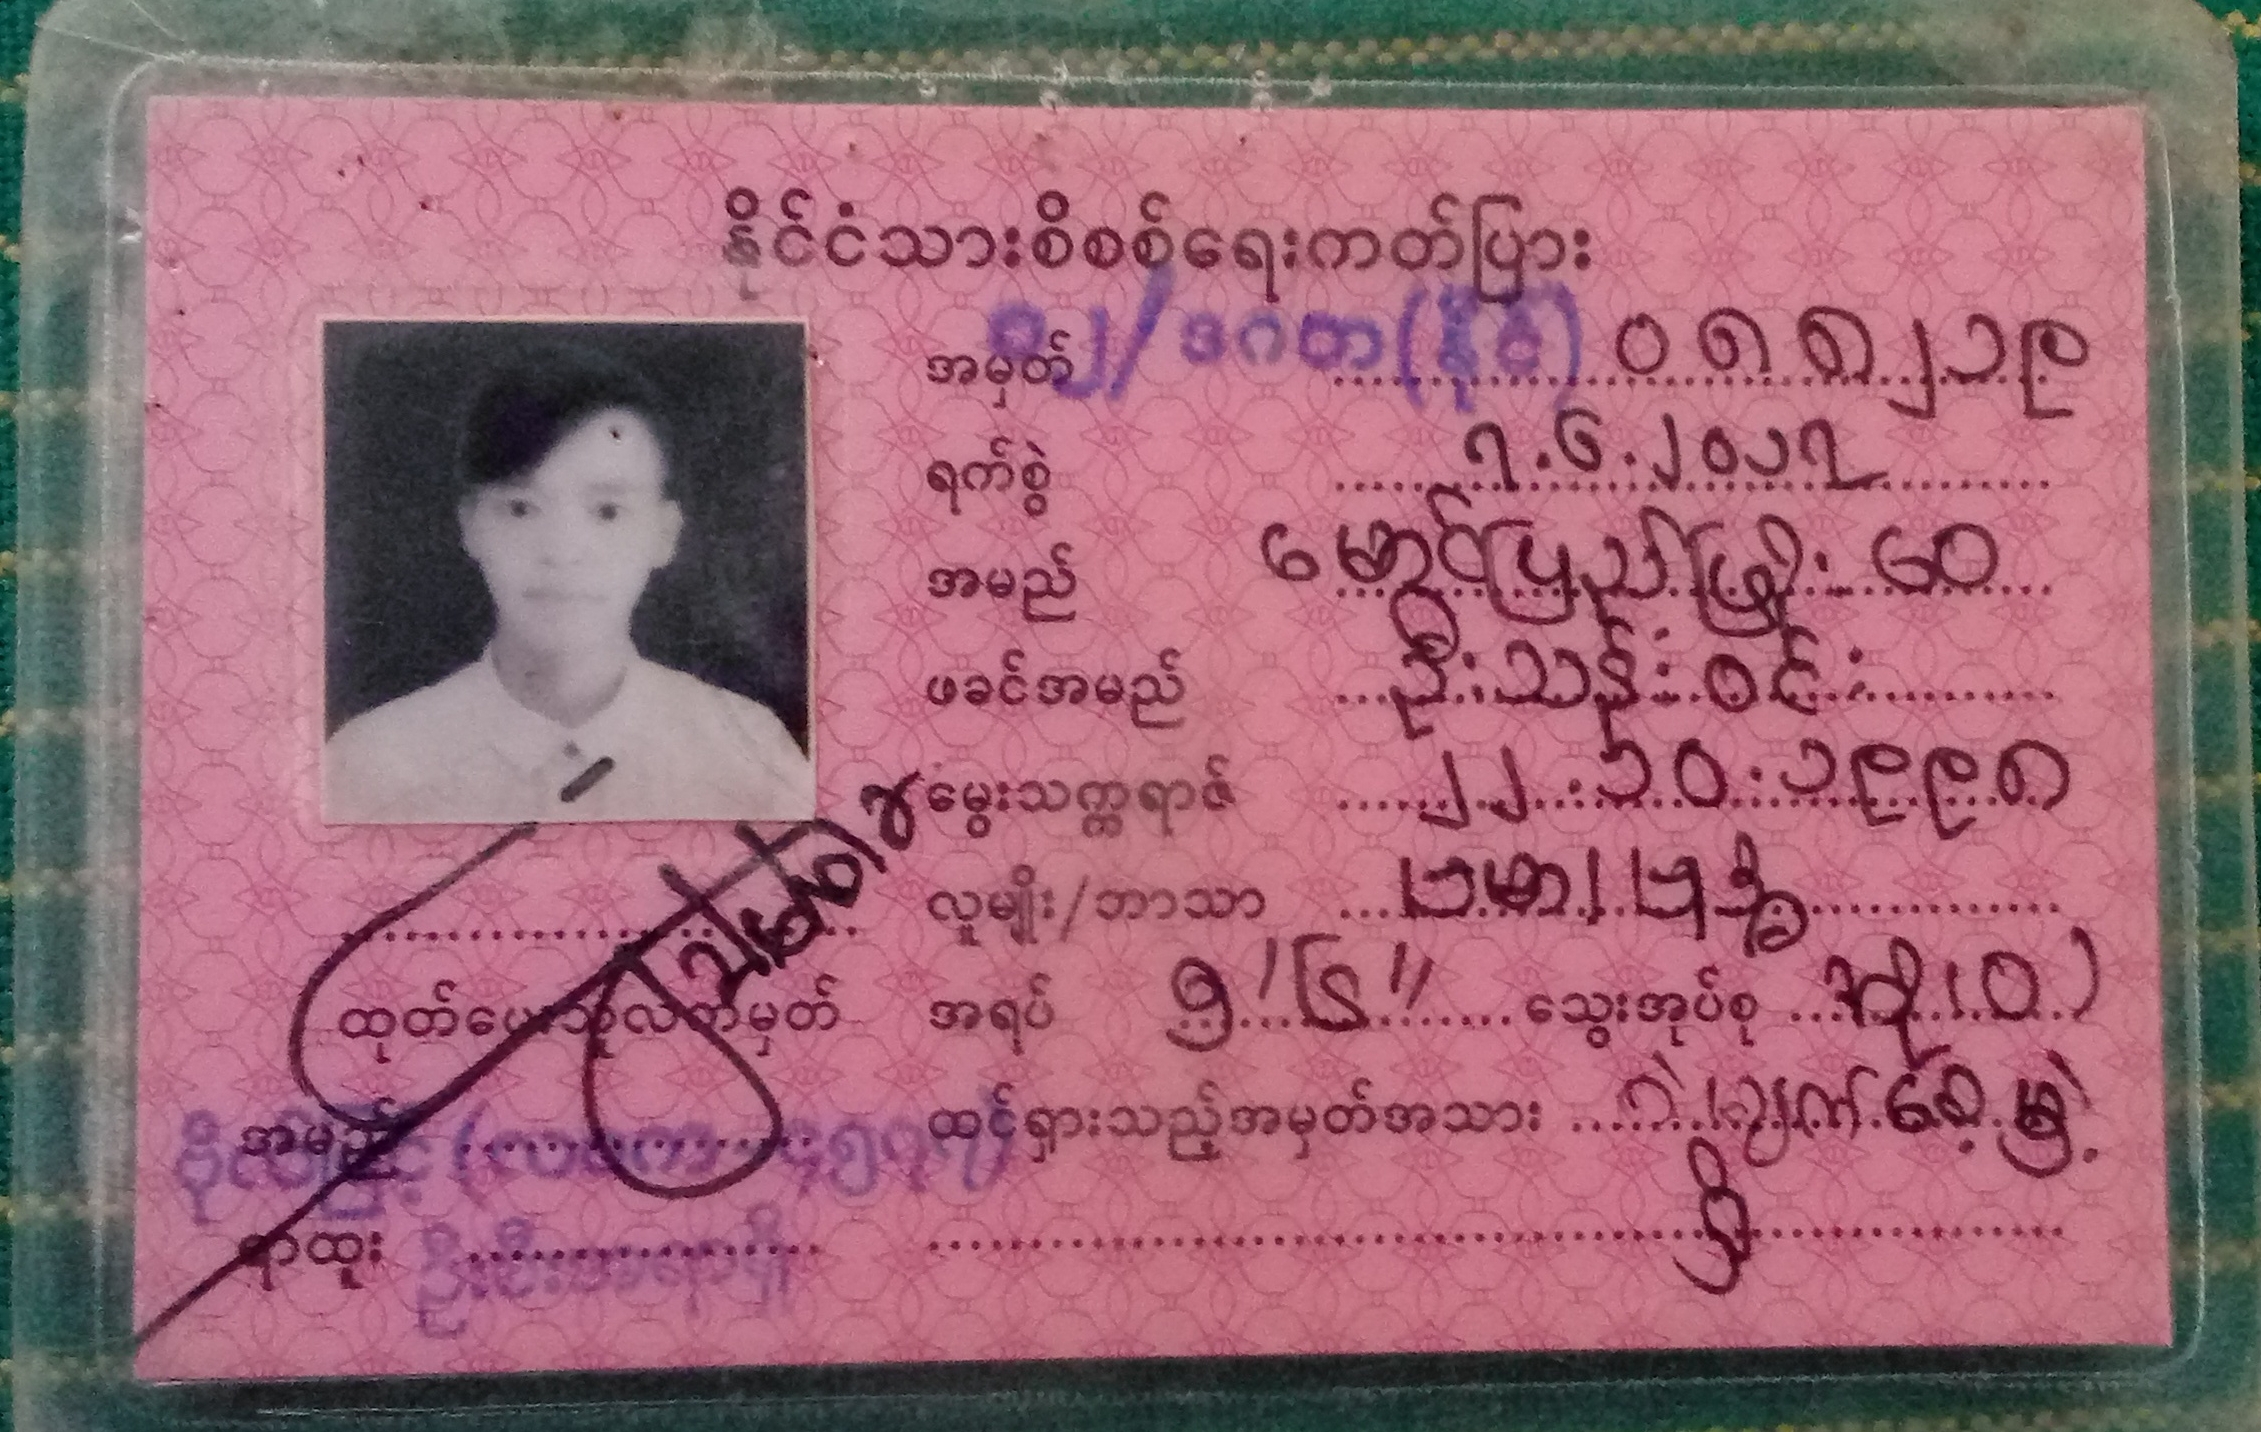 နိုင်ငံသားစိစစ်ရေးကတ်ပြား
အမှတ် ၁၂/ဒဂတ(နိုင်) ၀၈၈၂၁၉
ရက်စွဲ ၇.၆.၂၀၁၇
အမည် မောင်ပြည်ဖြိုးဝေ
ဖခင်အမည် ဦးသန်းဝင်း
မွေးသက္ကရာဇ် ၂၂.၁၀.၁၉၉၈
လူမျိုး/ဘာသာ ဗမာ/ဗုဒ္ဓ
အရပ် ၅'၆" သွေးအုပ်စု အို(O)
ထုတ်ပေးသူလက်မှတ်
ထင်ရှားသည့်အမှတ်အသား ဝဲမျက်စေ့
အမည်
ရာထူး